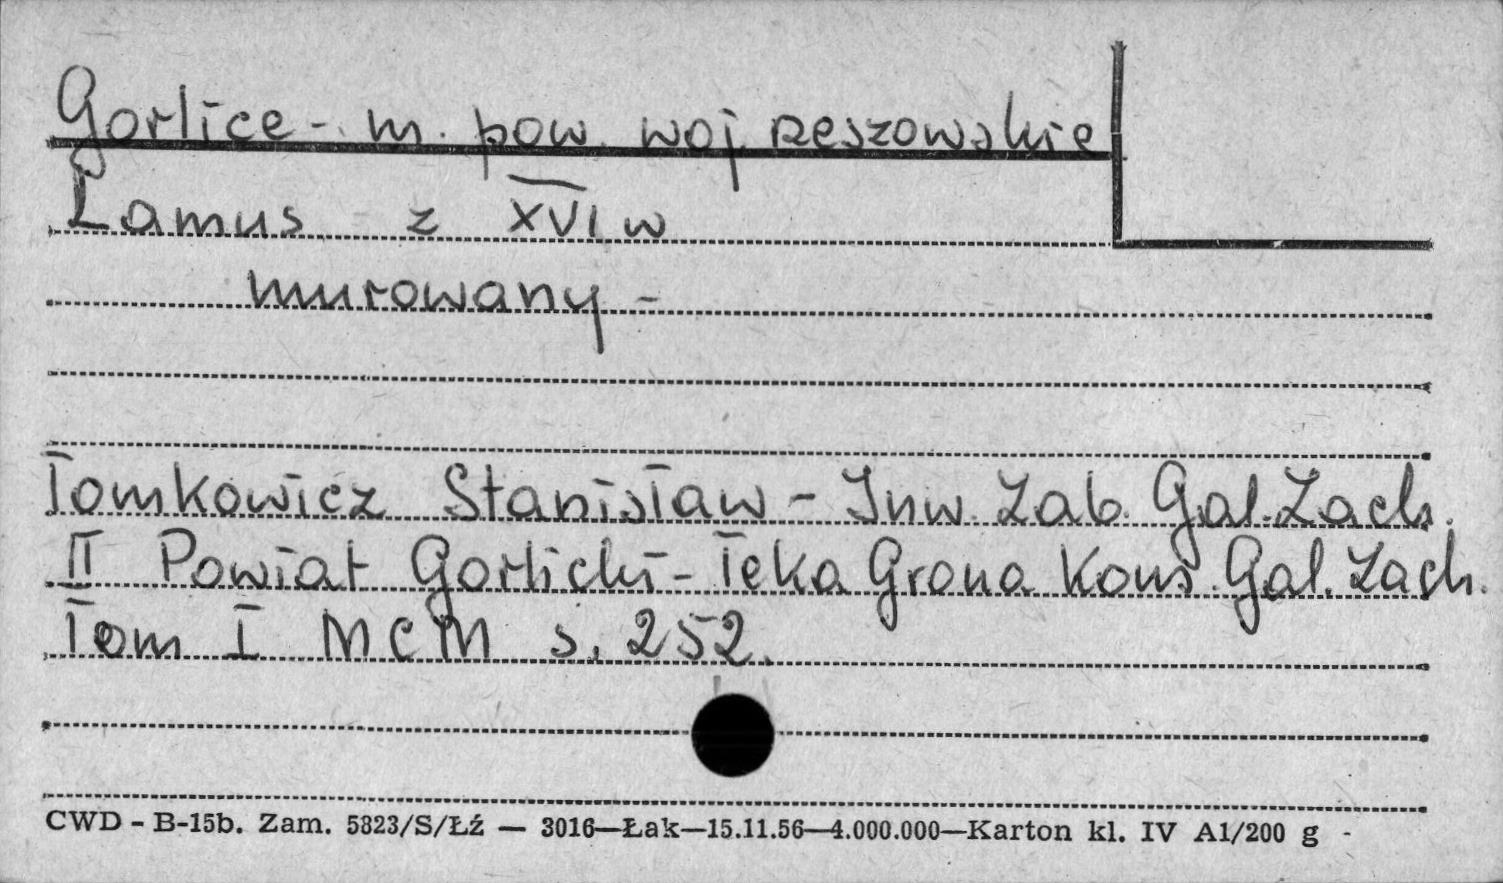 Gorlice - m. pow. woj. rzeszowskie
Lamus z XVI w
murowany -
Tomkowicz Stanisław - Inw. Zab. Gal. Zach.
II Powiat Gorlicki - Teka Grona Kons. Gal. Zach.
Tom I MCM s. 252.
CWD - B-15b. Zam. 5823/S/Łź — 3016—Łak—15.11.56—4.000.000—Karton kl. IV A1/200 g -